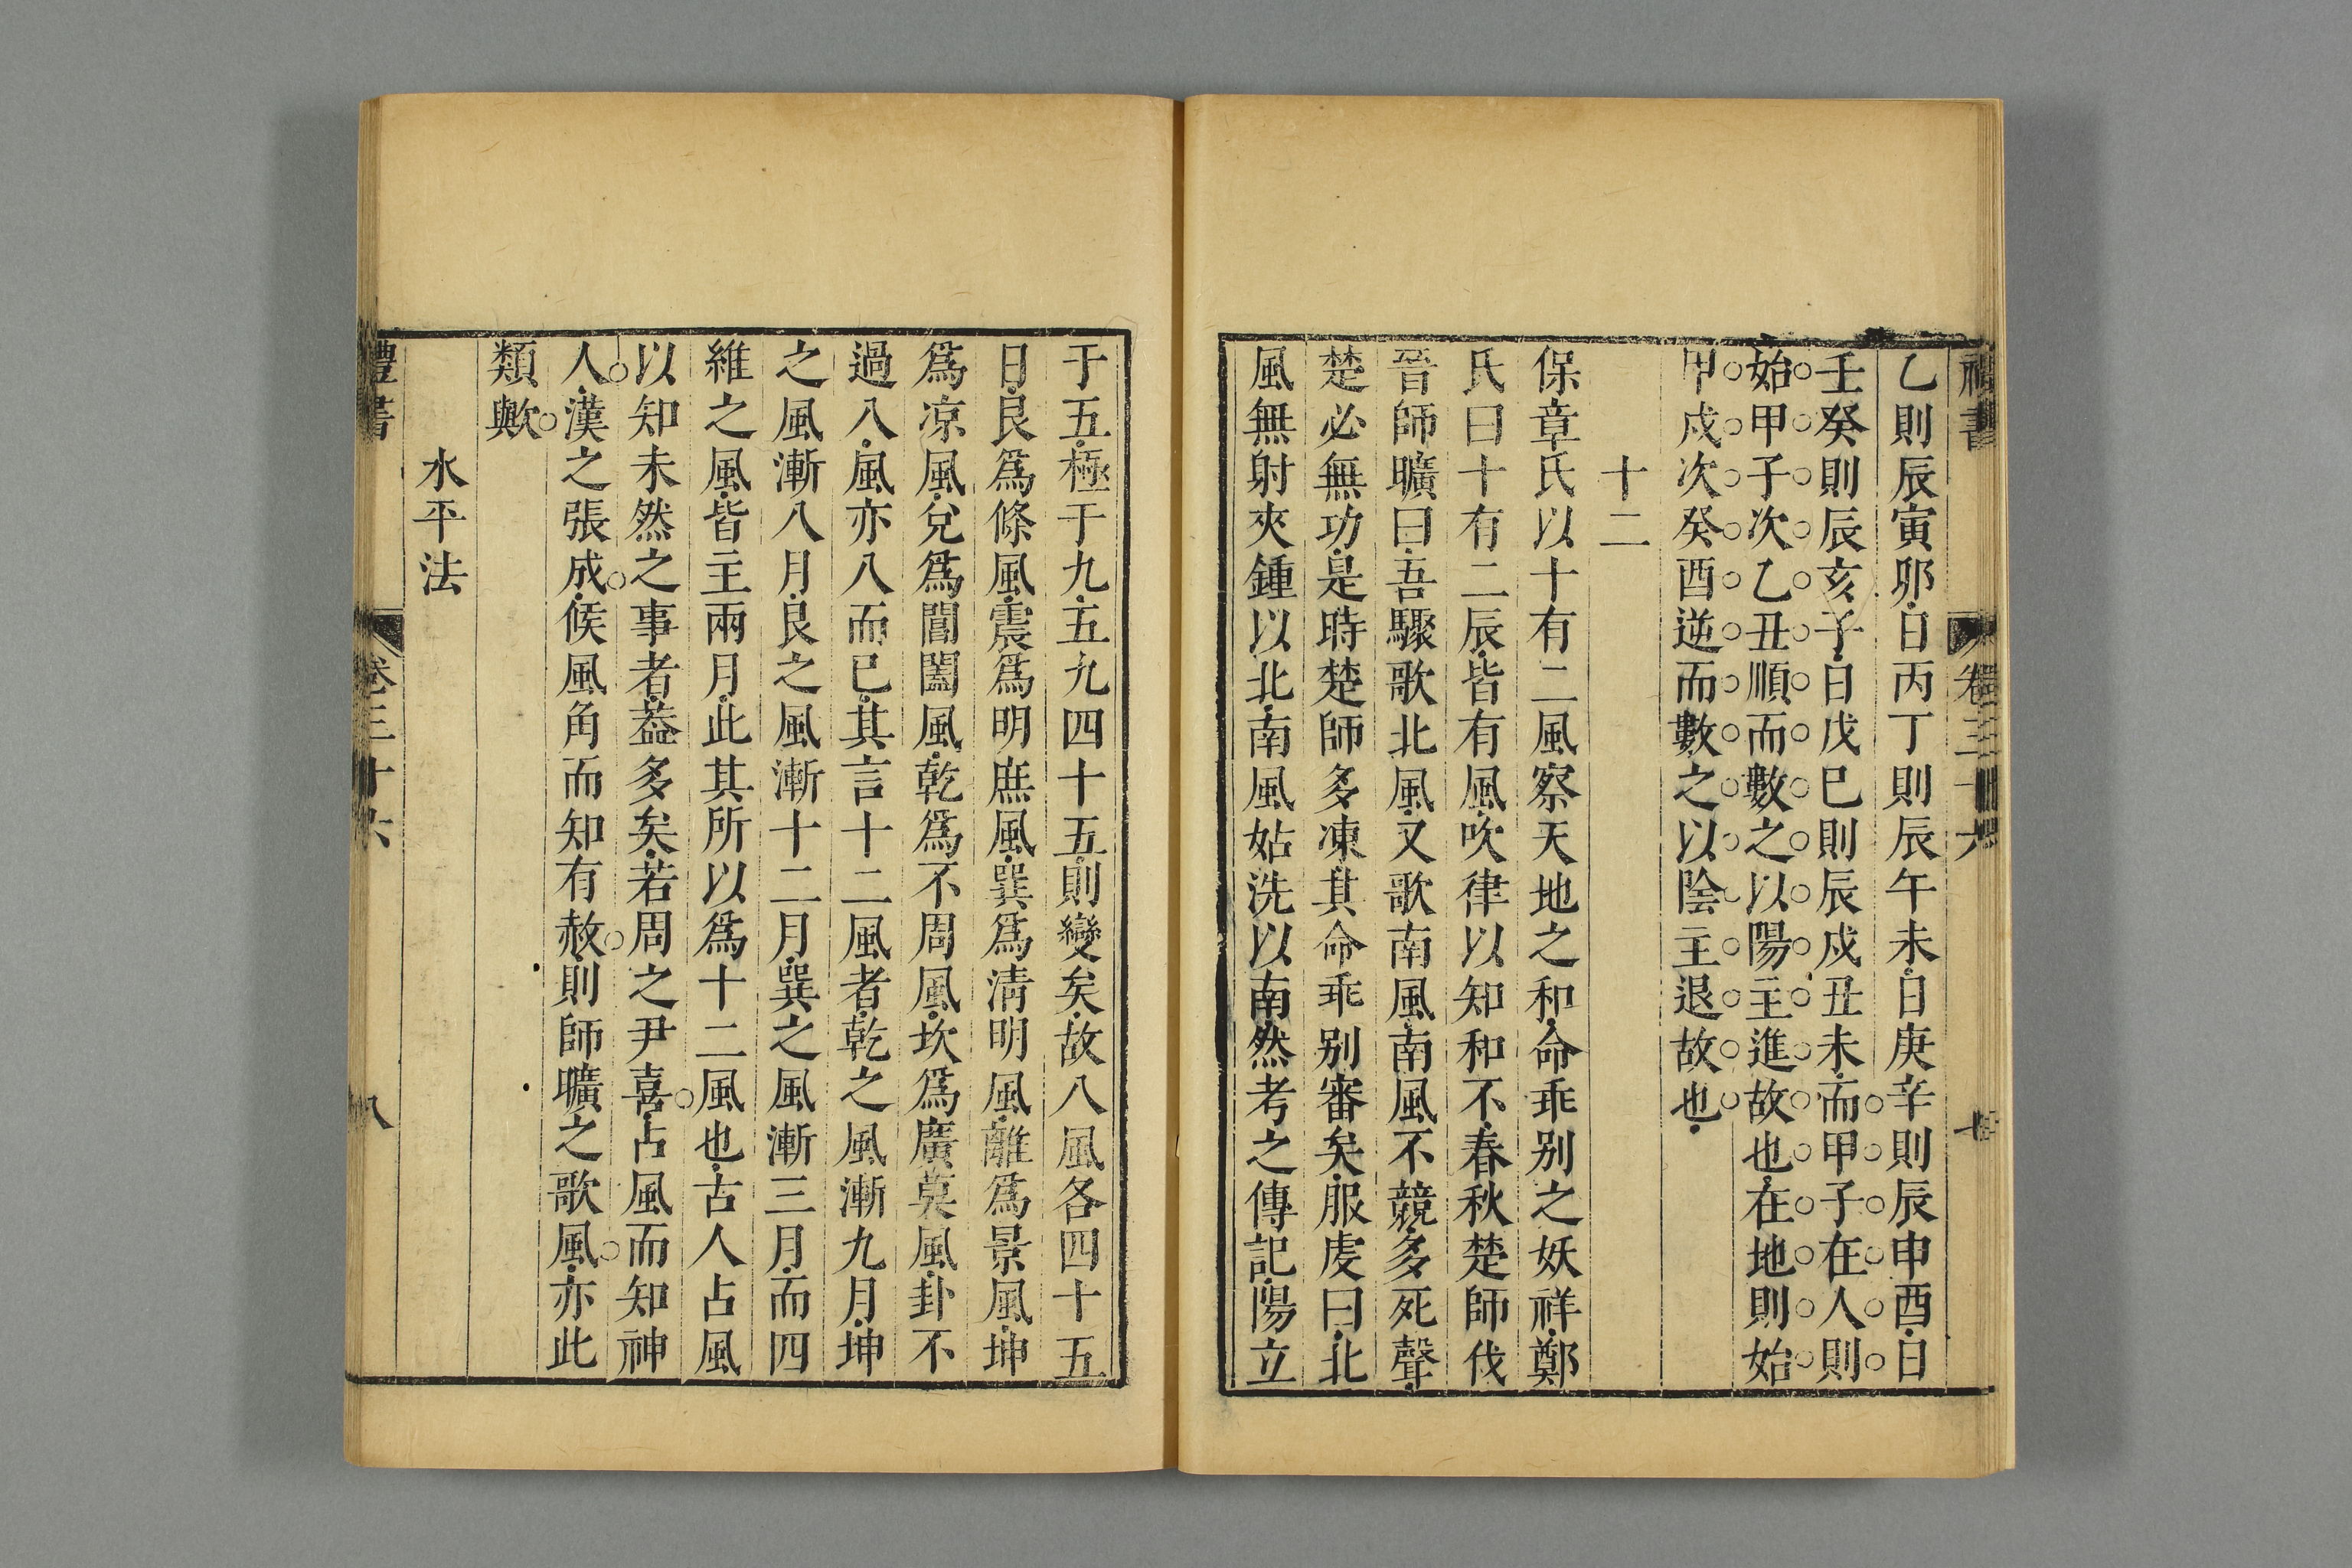 禮書 卷三十六 七
乙則辰寅卯日丙丁則辰午未日庚辛則辰申酉日
壬癸則辰亥子日戊巳則辰戍丑未而甲子在人則
始甲子次乙丑順而數之以陽主進故也在地則始
甲戍次癸酉逆而數之以陰主退故也
十二
保章氏以十有二風察天地之和命乖别之妖祥鄭
氏曰十有二辰皆有風吹律以知和不春秋楚師伐
晉師曠曰吾驟歌北風又歌南風南風不競多死聲
楚必無功是時楚師多凍其命乖别審矣服虔曰北
風無射夾鍾以北南風姑洗以南然考之傳記陽立
于五極于九五九四十五則變矣故八風各四十五
日艮爲條風震爲明庶風巽爲淸明風離爲景風坤
爲凉風兌爲閶闔風乾爲不周風坎爲廣莫風卦不
過八風亦八而已其言十二風者乾之風漸九月坤
之風漸八月艮之風漸十二月巽之風漸三月而四
維之風皆主兩月此其所以爲十二風也古人占風
以知未然之事者葢多矣若周之尹喜占風而知神
人漢之張成候風角而知有赦則師曠之歌風亦此
類歟
水平法
禮書 卷三十六 八